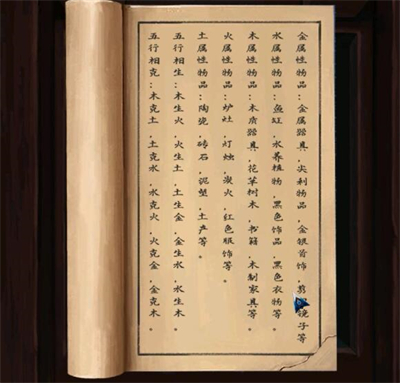 金属性物品：金属器具,尖利物品,金银首饰,剪 镜子等
水属性物品：鱼缸,水养植物,黑色饰品,黑色衣物等
木属性物品：木质器具,花草树木,书籍,木制家具等
火属性物品：炉灶,灯烛,凝火,红色服饰等。
土属性物品：陶瓷,砖石,泥塑,土产等。
五行相生：木生火,火生土,土生金,金生水,水生木。
五行相克：木克土,土克水,水克火,火克金,金克木。